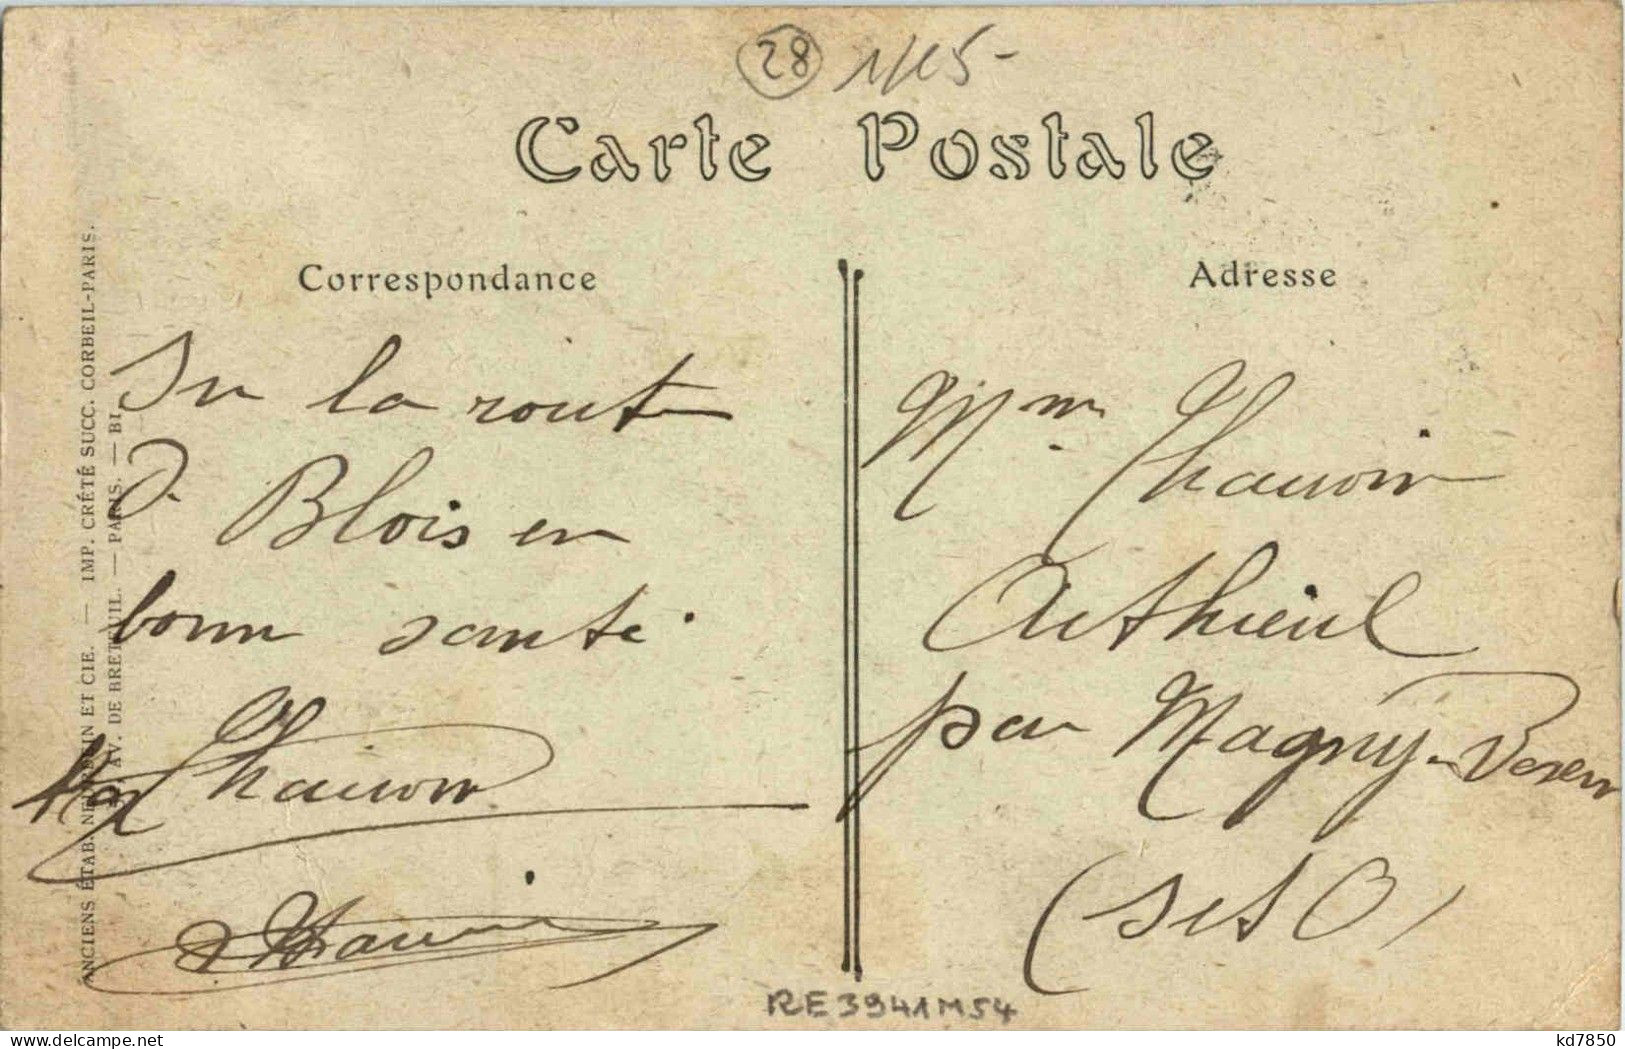 28 1/15-
Carte Postale
Correspondance
Adresse
ANCIENS ÉTAB. NEURDEIN ET CIE. — IMP. CRÉTÉ SUCC. CORBEIL-PARIS.
AV. DE BRETEUIL. — PARIS. — BI
Sur la route
d Blois en
bonn santé
Chauvin
Mme Chauvin
Arthieul
par Magny-Vexin
(S et O)
RE3941M54
kd7850